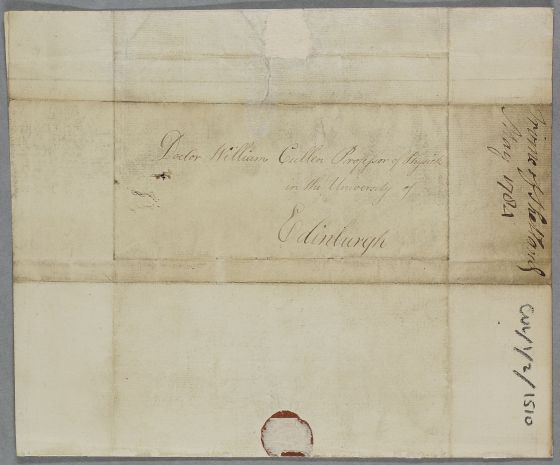 Doctor William Cullen Professor of Physick
in the University of
Edinburgh
May 1781
CUL/1/2/1510